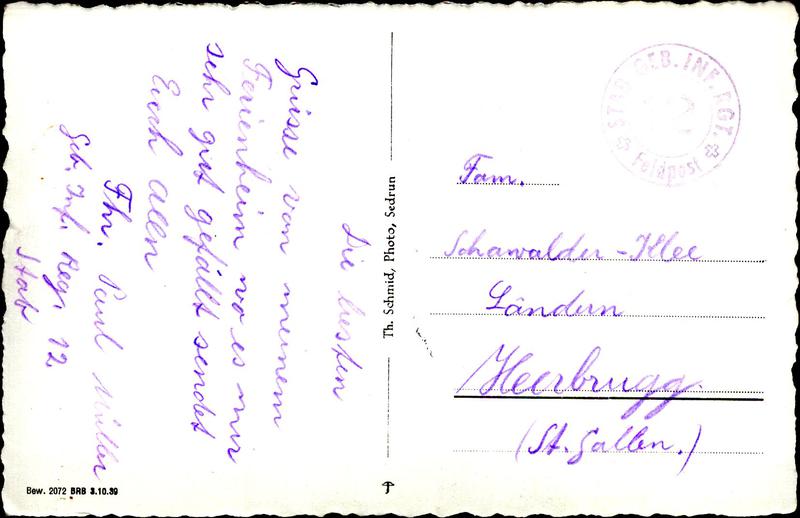 Die besten
Grüsse von meinem
Ferienheim wo es mir
sehr gut gefällt sendet
Euch allen
Fhr. Paul Müller
Geb. Inf. Reg. 12
Stab
Bew. 2072 BRB 3.10.39
Th. Schmid, Photo, Sedrun
STAB GEB. INF. RGT.
12
Feldpost
Fam.
Schawalder-Klee
Ländern
Heerbrugg.
(St. Gallen.)